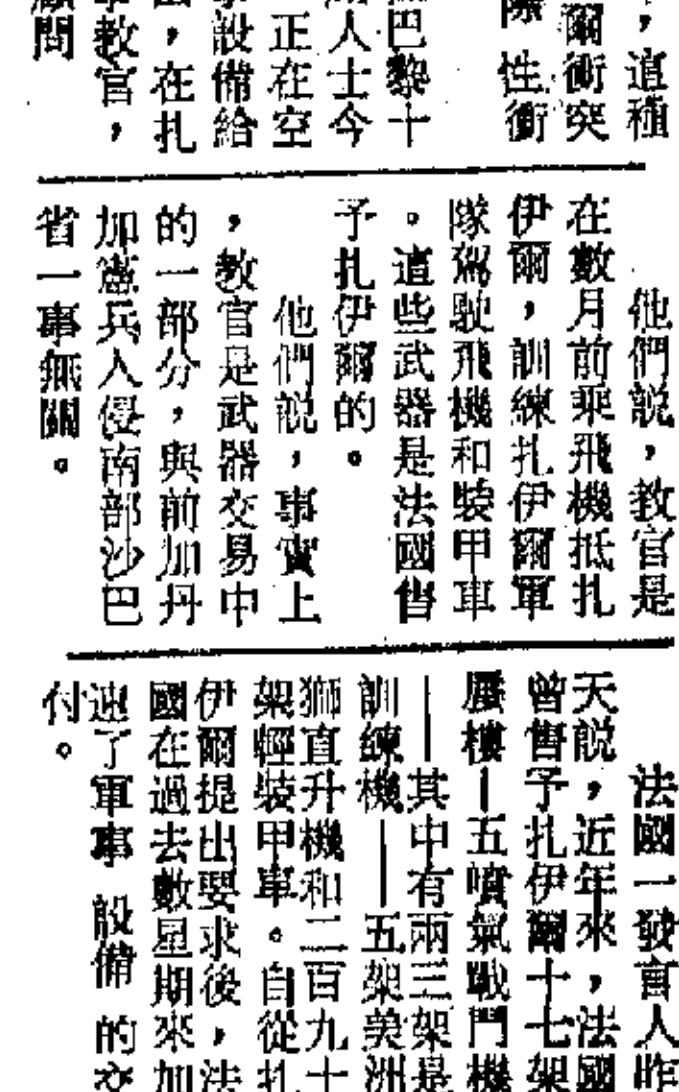 ，這種
爾衝突
際性衝
巴黎十
人士今
正在空
設備給
，在扎
教官，
問
他們說，教官是
在數月前乘飛機抵扎
伊爾，訓練扎伊爾軍
隊駕駛飛機和裝甲車
。這些武器是法國售
予扎伊爾的。
他們說，事實上
，教官是武器交易中
的一部分，與前加丹
加憲兵入侵南部沙巴
省一事無關。
法國一發言人昨
天說，近年來，法國
曾售予扎伊爾十七架
蜃樓—五噴氣戰鬥機
—其中有兩三架是
訓練機—五架美洲
獅直升機和二百九十
架輕裝甲車。自從扎
伊爾提出要求後，法
國在過去數星期來加
速了軍事設備的交
付。